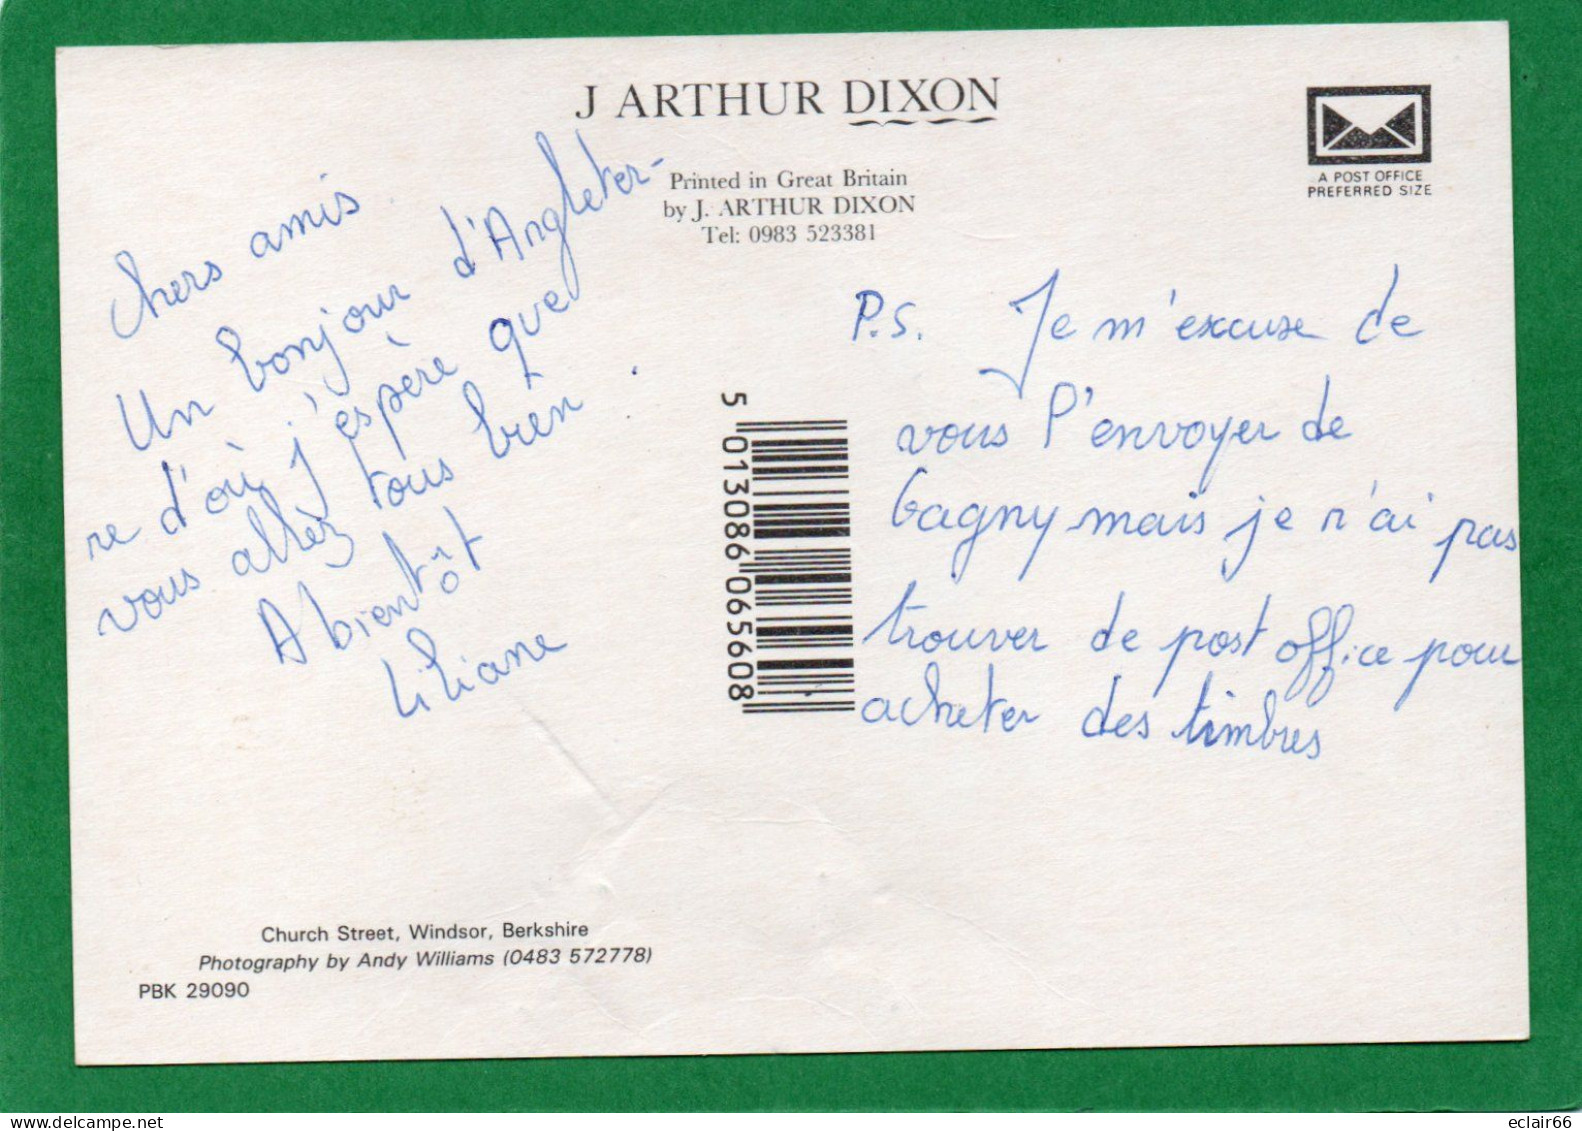 J ARTHUR DIXON
Printed in Great Britain
by J. ARTHUR DIXON
Tel: 0983 523381
A POST OFFICE
PREFERRED SIZE
Chers amis
Un bonjour d'Angleter-
re d'où j'espère que
vous allèz tous bien.
A bientôt
Liliane
P.S. Je m'excuse de
vous l'envoyer de
Gagny mais je n'ai pas
trouver de post office pour
acheter des timbres
5 013086 065608
Church Street, Windsor, Berkshire
Photography by Andy Williams (0483 572778)
PBK 29090
eclair66